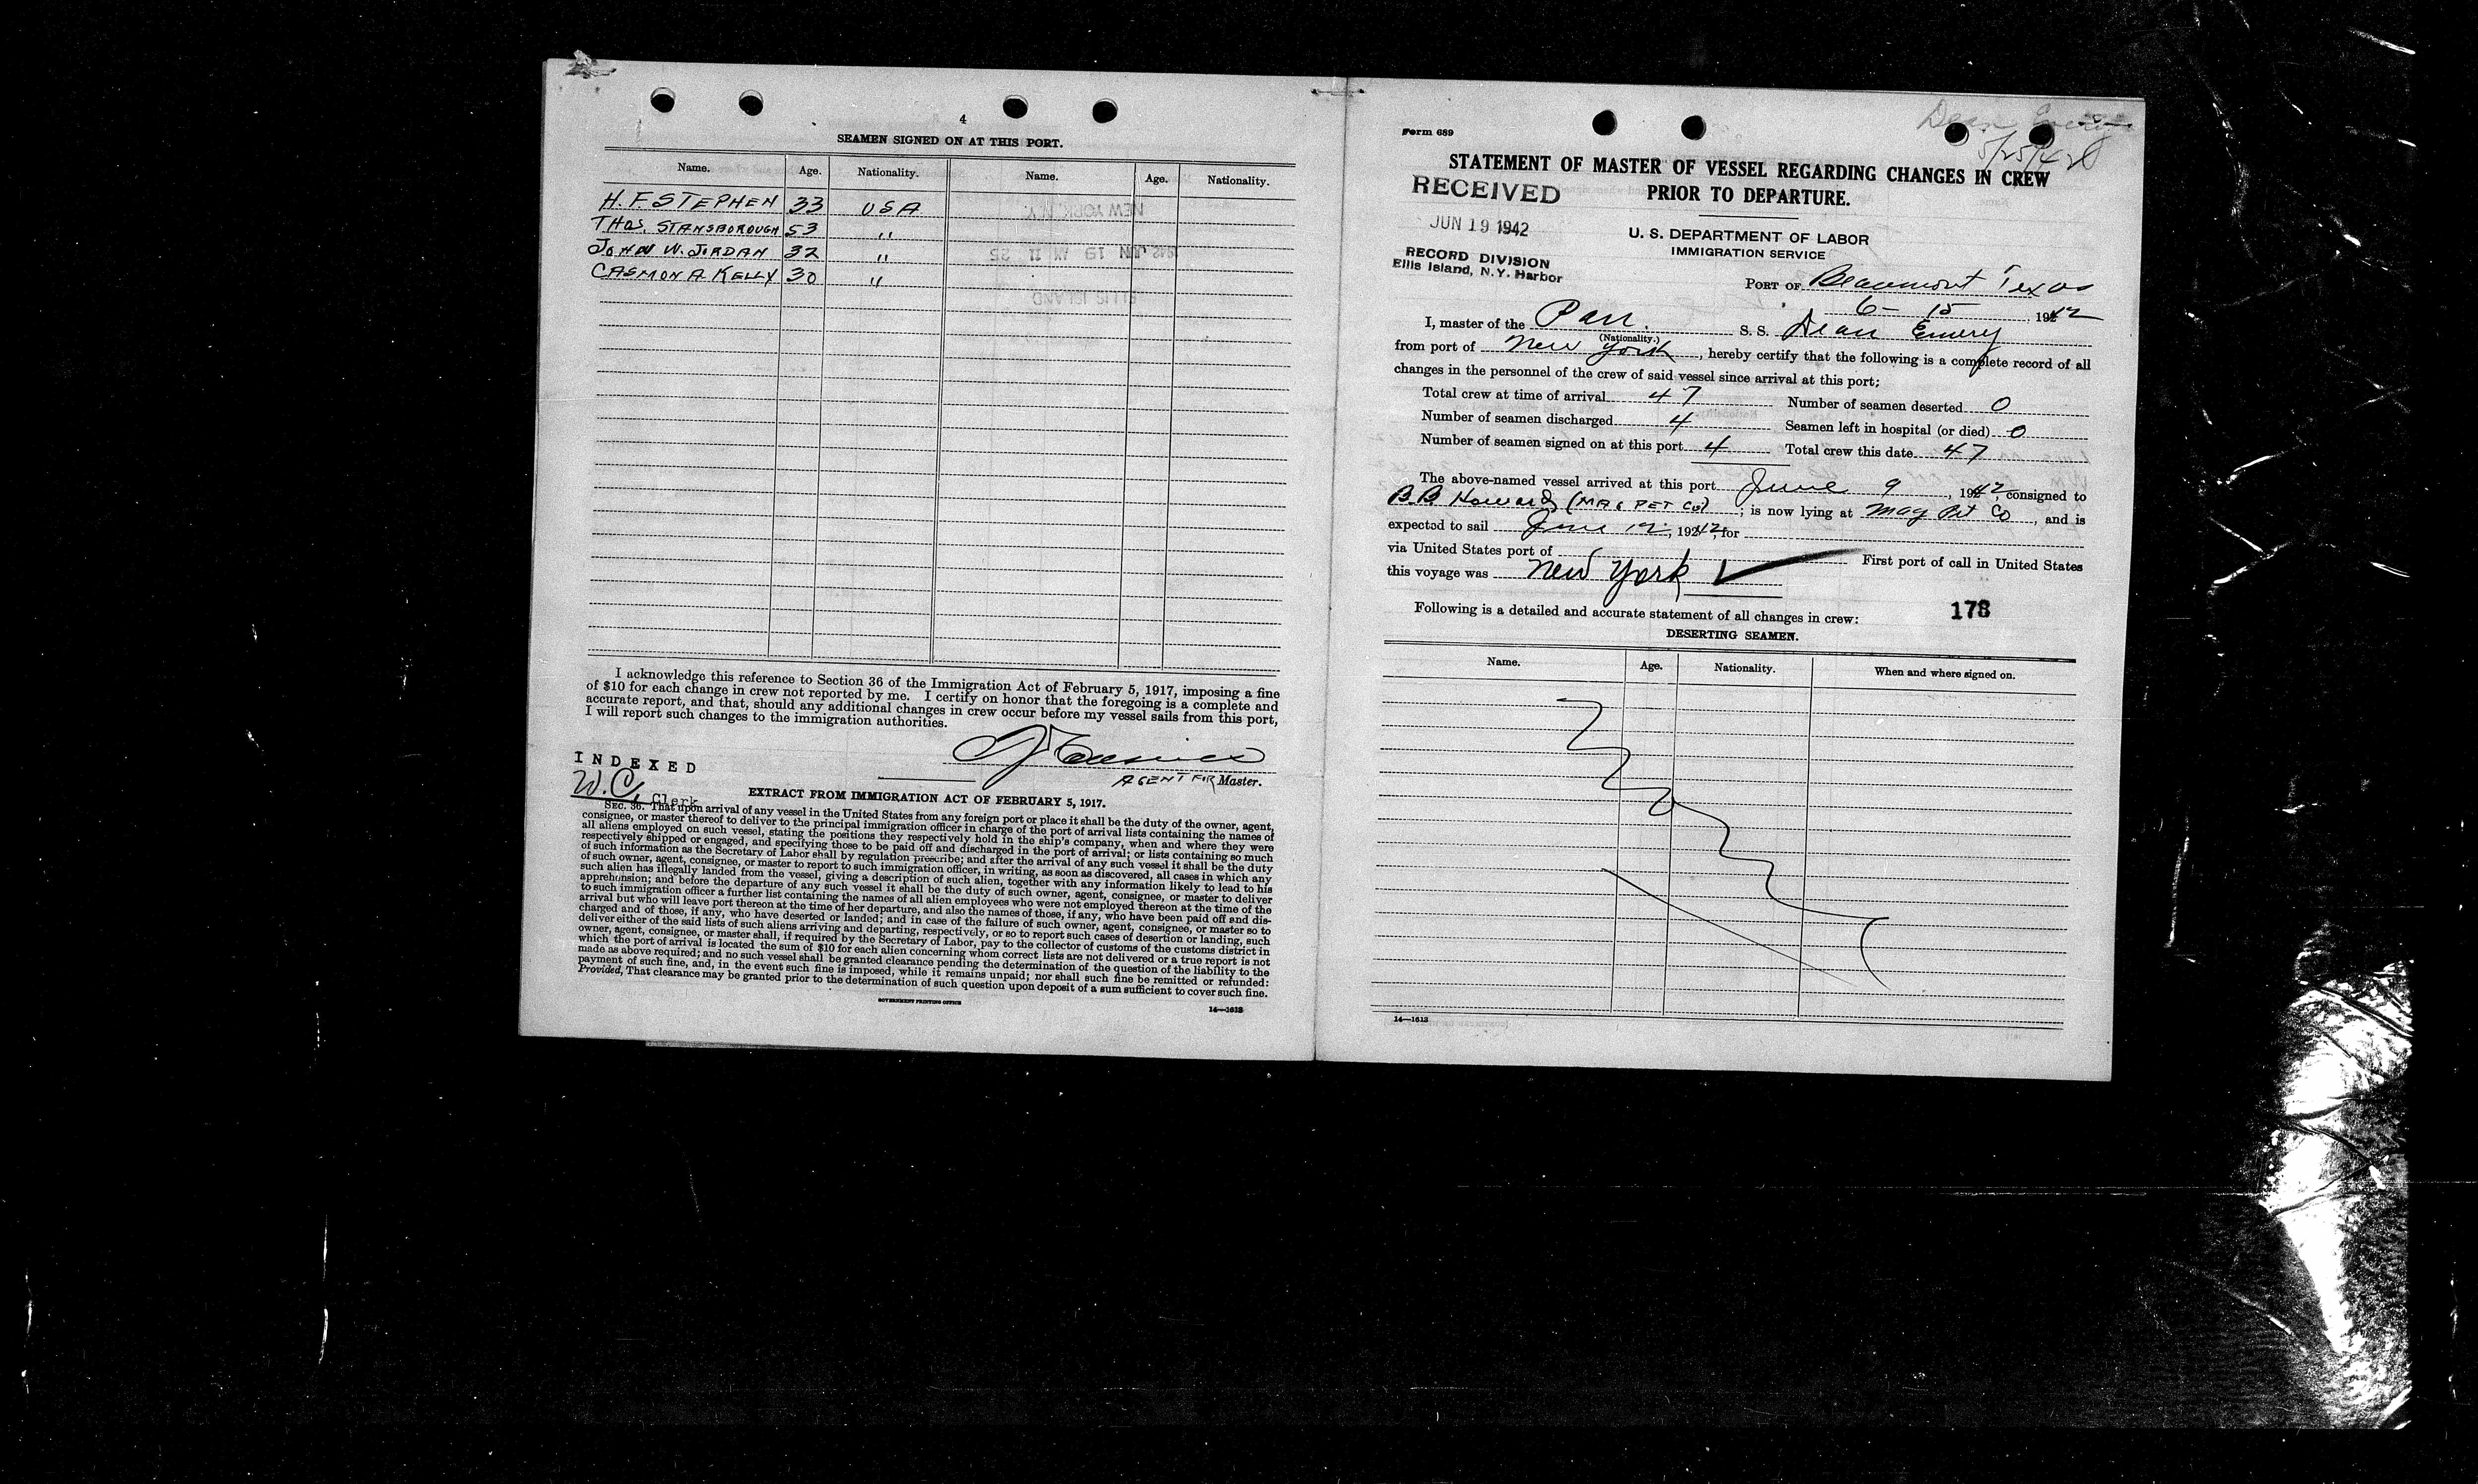 4
SEAMEN SIGNED ON AT THIS PORT.
Name. Age. Nationality. Name. Age. Nationality.
H. F. STEPHEN 33 USA
THOS. STANSBOROUGH 53 "
JOHN W. JORDAN 32 "
CASMON A. KELLY 30 "
I acknowledge this reference to Section 36 of the Immigration Act of February 5, 1917, imposing a fine
of $10 for each change in crew not reported by me. I certify on honor that the foregoing is a complete and
accurate report, and that, should any additional changes in crew occur before my vessel sails from this port,
I will report such changes to the immigration authorities.
AGENT FOR Master.
INDEXED
W.C. Clerk
EXTRACT FROM IMMIGRATION ACT OF FEBRUARY 5, 1917.
SEC. 36. That upon arrival of any vessel in the United States from any foreign port or place it shall be the duty of the owner, agent,
consignee, or master thereof to deliver to the principal immigration officer in charge of the port of arrival lists containing the names of
all aliens employed on such vessel, stating the positions they respectively hold in the ship's company, when and where they were
respectively shipped or engaged, and specifying those to be paid off and discharged in the port of arrival; or lists containing so much
of such information as the Secretary of Labor shall by regulation prescribe; and after the arrival of any such vessel it shall be the duty
of such owner, agent, consignee, or master to report to such immigration officer, in writing, as soon as discovered, all cases in which any
such alien has illegally landed from the vessel, giving a description of such alien, together with any information likely to lead to his
apprehension; and before the departure of any such vessel it shall be the duty of such owner, agent, consignee, or master to deliver
to such immigration officer a further list containing the names of all alien employees who were not employed thereon at the time of the
arrival but who will leave port thereon at the time of her departure, and also the names of those, if any, who have been paid off and dis-
charged and of those, if any, who have deserted or landed; and in case of the failure of such owner, agent, consignee, or master so to
deliver either of the said lists of such aliens arriving and departing, respectively, or so to report such cases of desertion or landing, such
owner, agent, consignee, or master shall, if required by the Secretary of Labor, pay to the collector of customs of the customs district in
which the port of arrival is located the sum of $10 for each alien concerning whom correct lists are not delivered or a true report is not
made as above required; and no such vessel shall be granted clearance pending the determination of the question of the liability to the
payment of such fine, and, in the event such fine is imposed, while it remains unpaid; nor shall such fine be remitted or refunded:
Provided, That clearance may be granted prior to the determination of such question upon deposit of a sum sufficient to cover such fine.
GOVERNMENT PRINTING OFFICE
14—1613
Dean Emery
5/25/42
Form 689
STATEMENT OF MASTER OF VESSEL REGARDING CHANGES IN CREW
PRIOR TO DEPARTURE.
RECEIVED
JUN 19 1942
RECORD DIVISION
Ellis Island, N.Y. Harbor
U. S. DEPARTMENT OF LABOR
IMMIGRATION SERVICE
PORT OF Beaumont Texas
6 - 15, 1942
I, master of the Pan. S. S. Dean Emery
(Nationality.)
from port of New York, hereby certify that the following is a complete record of all
changes in the personnel of the crew of said vessel since arrival at this port:
Total crew at time of arrival 47 Number of seamen deserted 0
Number of seamen discharged 4 Seamen left in hospital (or died) 0
Number of seamen signed on at this port 4 Total crew this date 47
The above-named vessel arrived at this port June 9, 1942, consigned to
B.B Howard (MAG PET CO), is now lying at Mag Pet Co, and is
expected to sail June 12, 1942, for
via United States port of First port of call in United States
this voyage was New York
178
Following is a detailed and accurate statement of all changes in crew:
DESERTING SEAMEN.
Name. Age. Nationality. When and where signed on.
14—1613